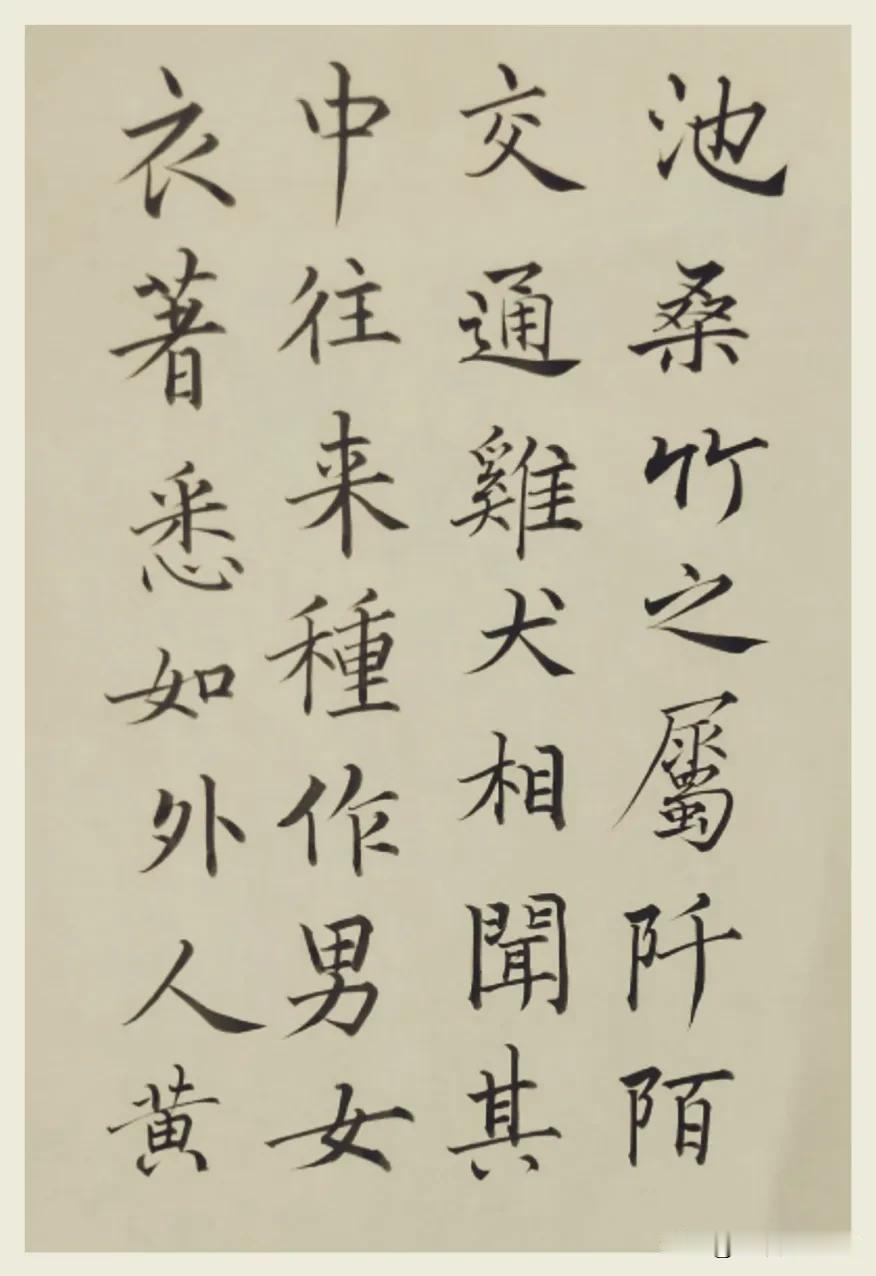 池桑竹之屬阡陌
交通雞犬相聞其
中往来種作男女
衣著悉如外人黄